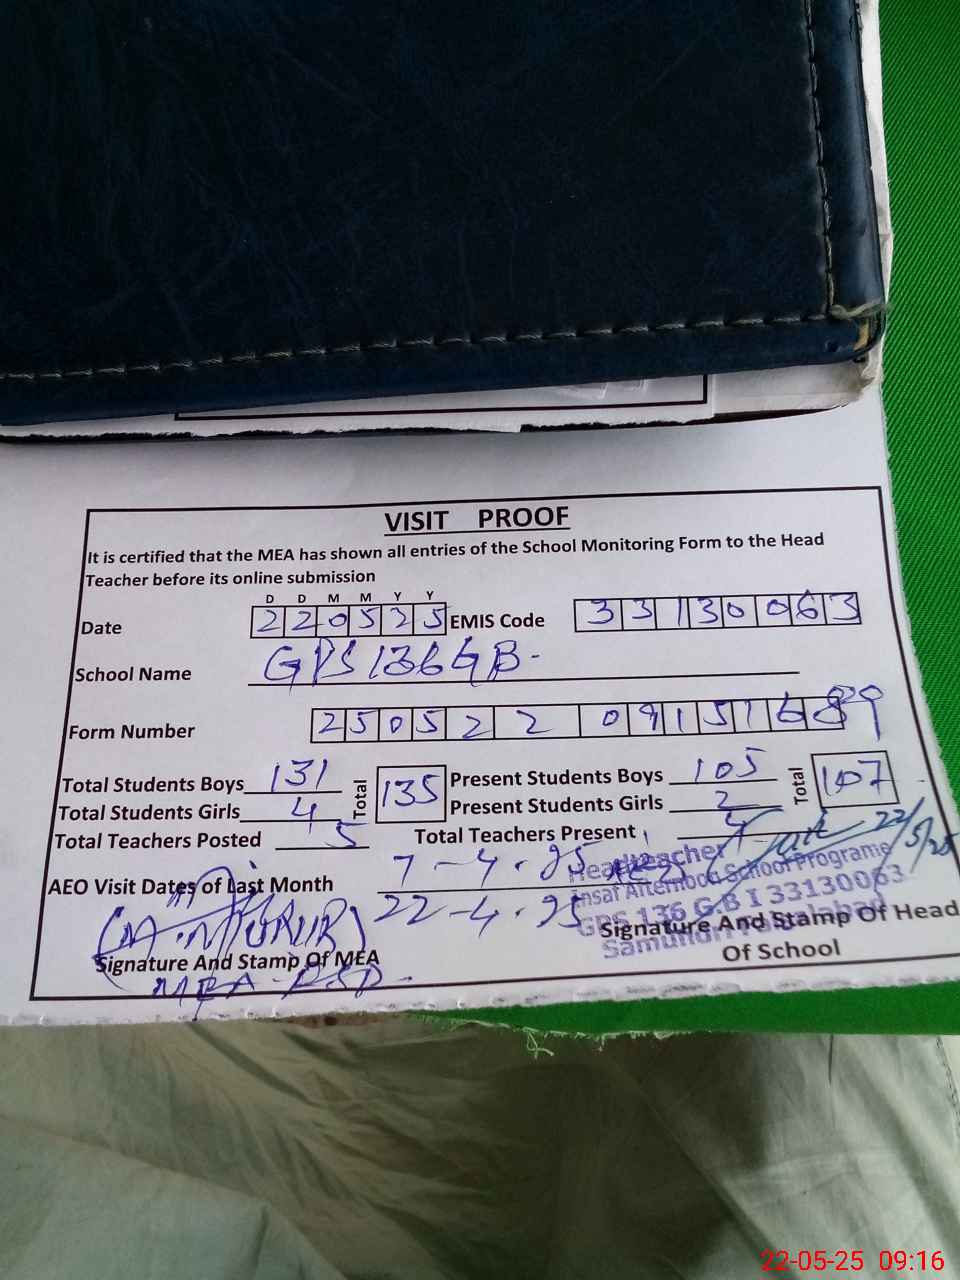 VISIT PROOF
It is certified that the MEA has shown all entries of the School Monitoring Form to the Head
Teacher before its online submission
D D M M Y Y
Date 220525 EMIS Code 33130063
School Name GPS 136 GB.
Form Number 25052209151689
Total Students Boys 131 Total 135 Present Students Boys 105 Total 107
Total Students Girls 4 Present Students Girls 2
Total Teachers Posted 5 Total Teachers Present 4
22/5/25
AEO Visit Dates of Last Month 7-4.25
22-4.25
Headteacher
Insaf Afternoon School Programe
GPS 136 G.B I 33130063
Samundri Faisalabad
Signature And Stamp Of MEA
MEA
Signature And Stamp Of Head
Of School
22-05-25 09:16